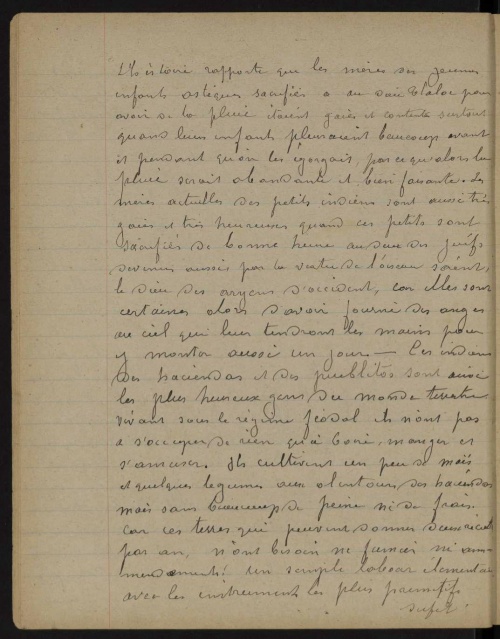 L'histoire rapporte que les mères des jeunes
enfants astèques sacrifiés a au dieu Tlaloc pour
avoir de la pluie étaient gaies et contente surtout
quand leurs enfants pleuraient beaucoup avant
et pendant qu'on les égorgait, parce qu'alors la
pluie serait abondante et bienfaisante. des
mères actuelles des petits indiens sont aussi très
gaies et très heureuses quand ces petits sont
sacrifiés de bonne heure au dieu des juifs
devenus aussi par la vertu de l'oiseau saint,
le dieu des aryens d'occident, car elles sont
certaines alors d'avoir fourni des anges
au ciel qui leur tendront les mains pour
y monter aussi un jour — Ces indiens
des haciendas et des pueblitos sont aussi
les plus heureux gens du monde terrestre
vivant sous le régime féodal ils n'ont pas
a s'occuper de rien qu'à boire, manger et
s'amuser. Ils cultivent un peu de maïs
et quelques legumes aux alentours des haciendas
mais sans beaucoup de peine ni de frais
car ces terres qui peuvent donner deux récoltes
par an, n'ont besoin ni fumier ni amen
mendements! Un simple labour élémentaire
avec les instruments les plus primitifs
sufit.